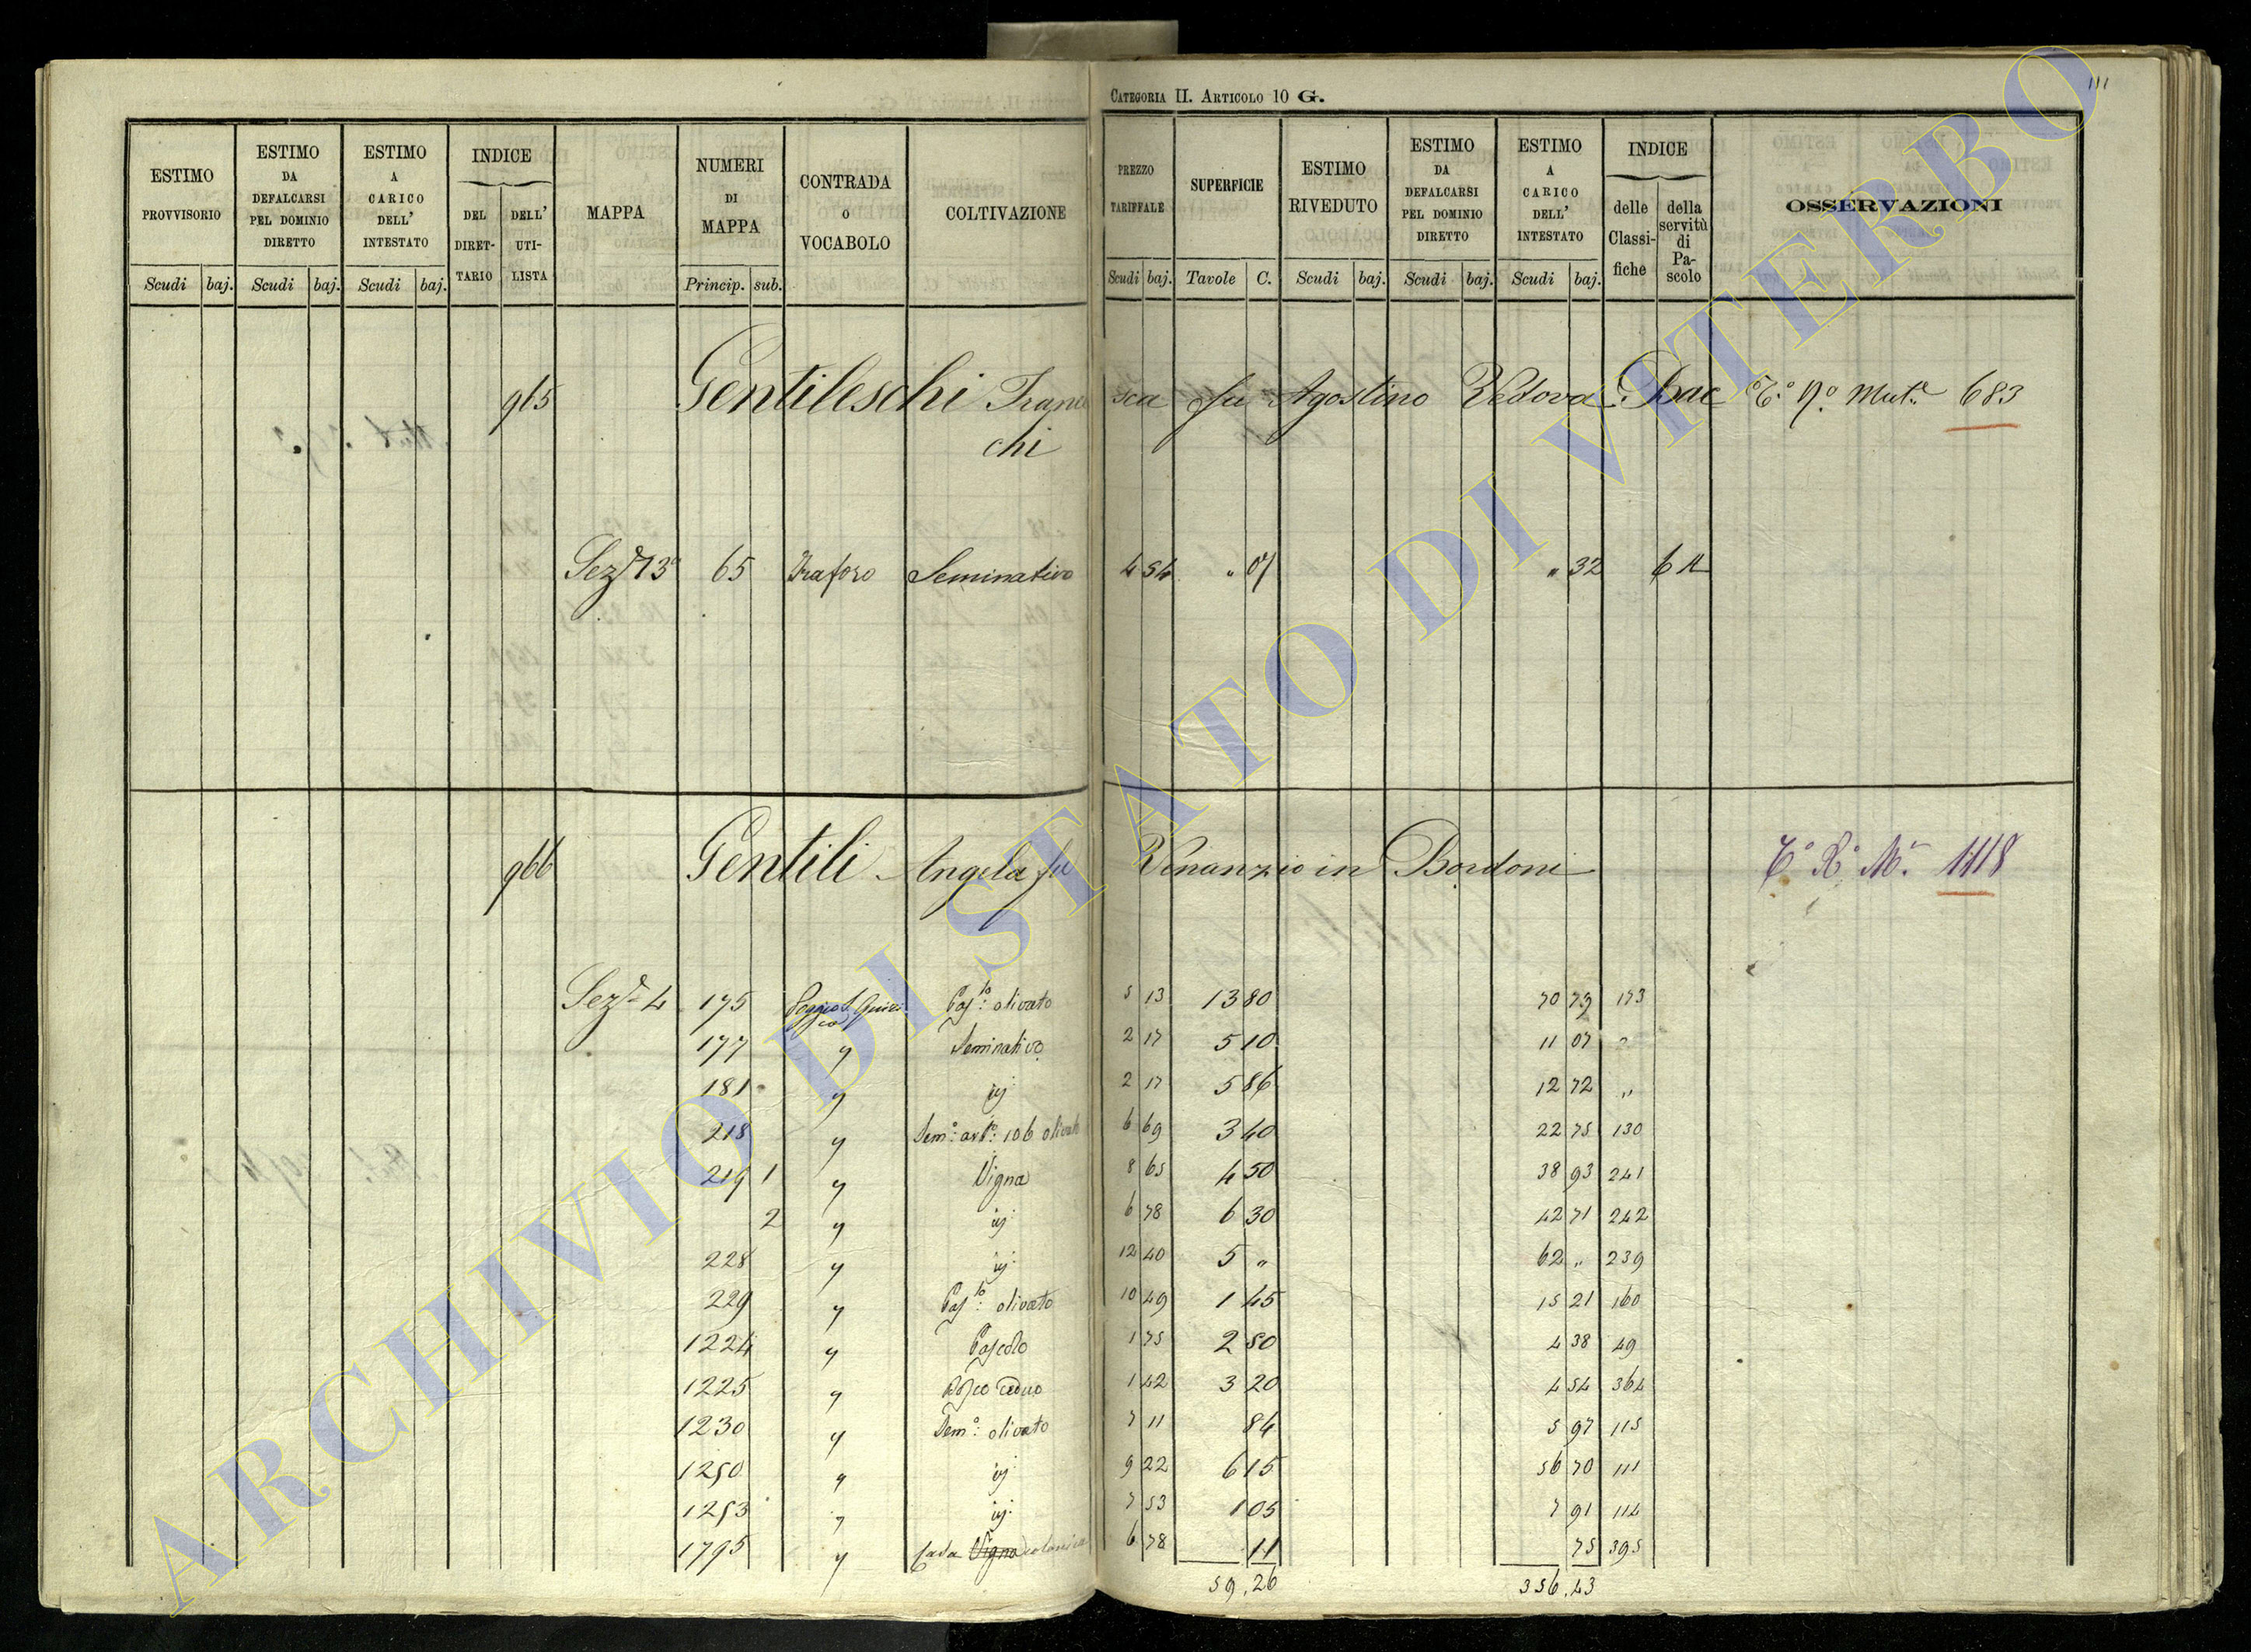 CATEGORIA II. ARTICOLO 10 G.
111
ESTIMO PROVVISORIO
ESTIMO DA DEFALCARSI PEL DOMINIO DIRETTO
ESTIMO A CARICO DELL' INTESTATO
INDICE
DEL DIRET-TARIO
DELL' UTI-LISTA
MAPPA
NUMERI DI MAPPA
CONTRADA O VOCABOLO
COLTIVAZIONE
PREZZO TARIFFALE
SUPERFICIE
ESTIMO RIVEDUTO
ESTIMO DA DEFALCARSI PEL DOMINIO DIRETTO
ESTIMO A CARICO DELL' INTESTATO
INDICE
delle Classi-fiche
della servitù di Pa-scolo
OSSERVAZIONI
Scudi baj. Scudi baj. Scudi baj. Princip. sub. Scudi baj. Tavole C. Scudi baj. Scudi baj. Scudi baj.
965 Gentileschi Francesca fu Agostino Vedova Bac Mut. 683
chi
Sez. 13 65 Traforo Seminativo 4 54 " 07 " 32
966 Gentili Angela fu Venanzio in Bordoni 1118
Sez. 4 175 olivato 5 13 13 80 70 79 173
177 Seminativo 2 17 5 10 11 07 "
181 2 17 5 86 12 72 "
218 olivato 6 69 3 40 22 75 130
219 1 Vigna 8 65 4 50 38 93 241
2 6 78 6 30 42 71 242
228 12 40 5 " 62 " 239
229 olivato 10 49 1 45 15 21 160
1224 Pascolo 1 75 2 50 4 38 49
1225 Bosco ceduo 1 42 3 20 4 54 364
1230 Sem.o olivato 7 11 84 5 97 115
1250 9 22 6 15 56 70 111
1253 7 53 1 05 7 91 114
1795 Casa Vigna colonica 6 78 11 75 395
59.26 356.43
ARCHIVIO DI STATO DI VITERBO